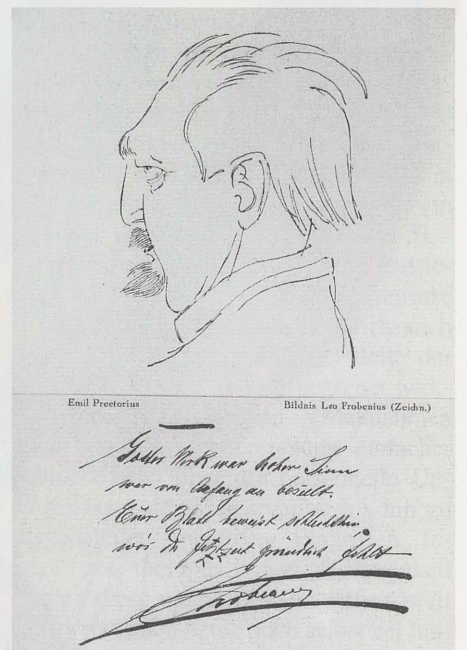 Emil Preetorius Bildnis Leo Frobenius (Zeichn.)
Werk war hoher Sinn
war von Anfang an beseelt.
Euer Blatt beweist schlechthin
wo's der Jetztzeit gründlich fehlt
Frobenius